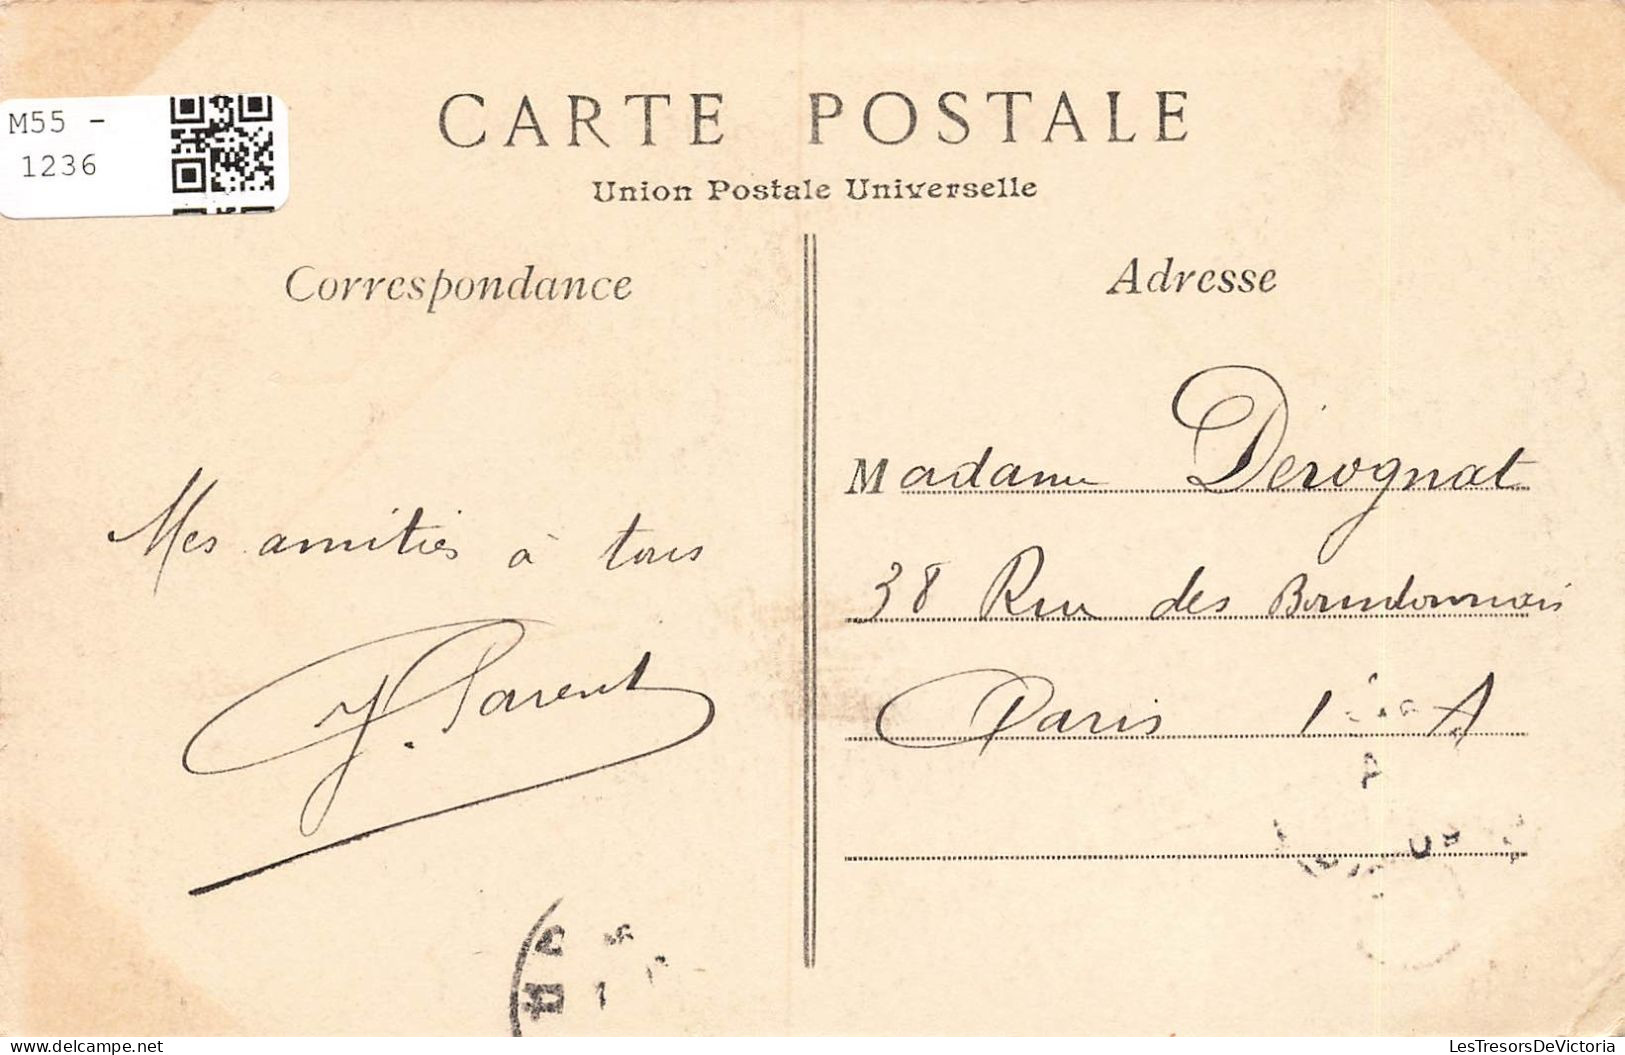 M55 -
1236
CARTE POSTALE
Union Postale Universelle
Correspondance
Adresse
Mes amitiés à tous
J. Parent
Madame Dérognat
38 Rue des Bourdonnais
Paris 1 A
LesTresorsDeVictoria